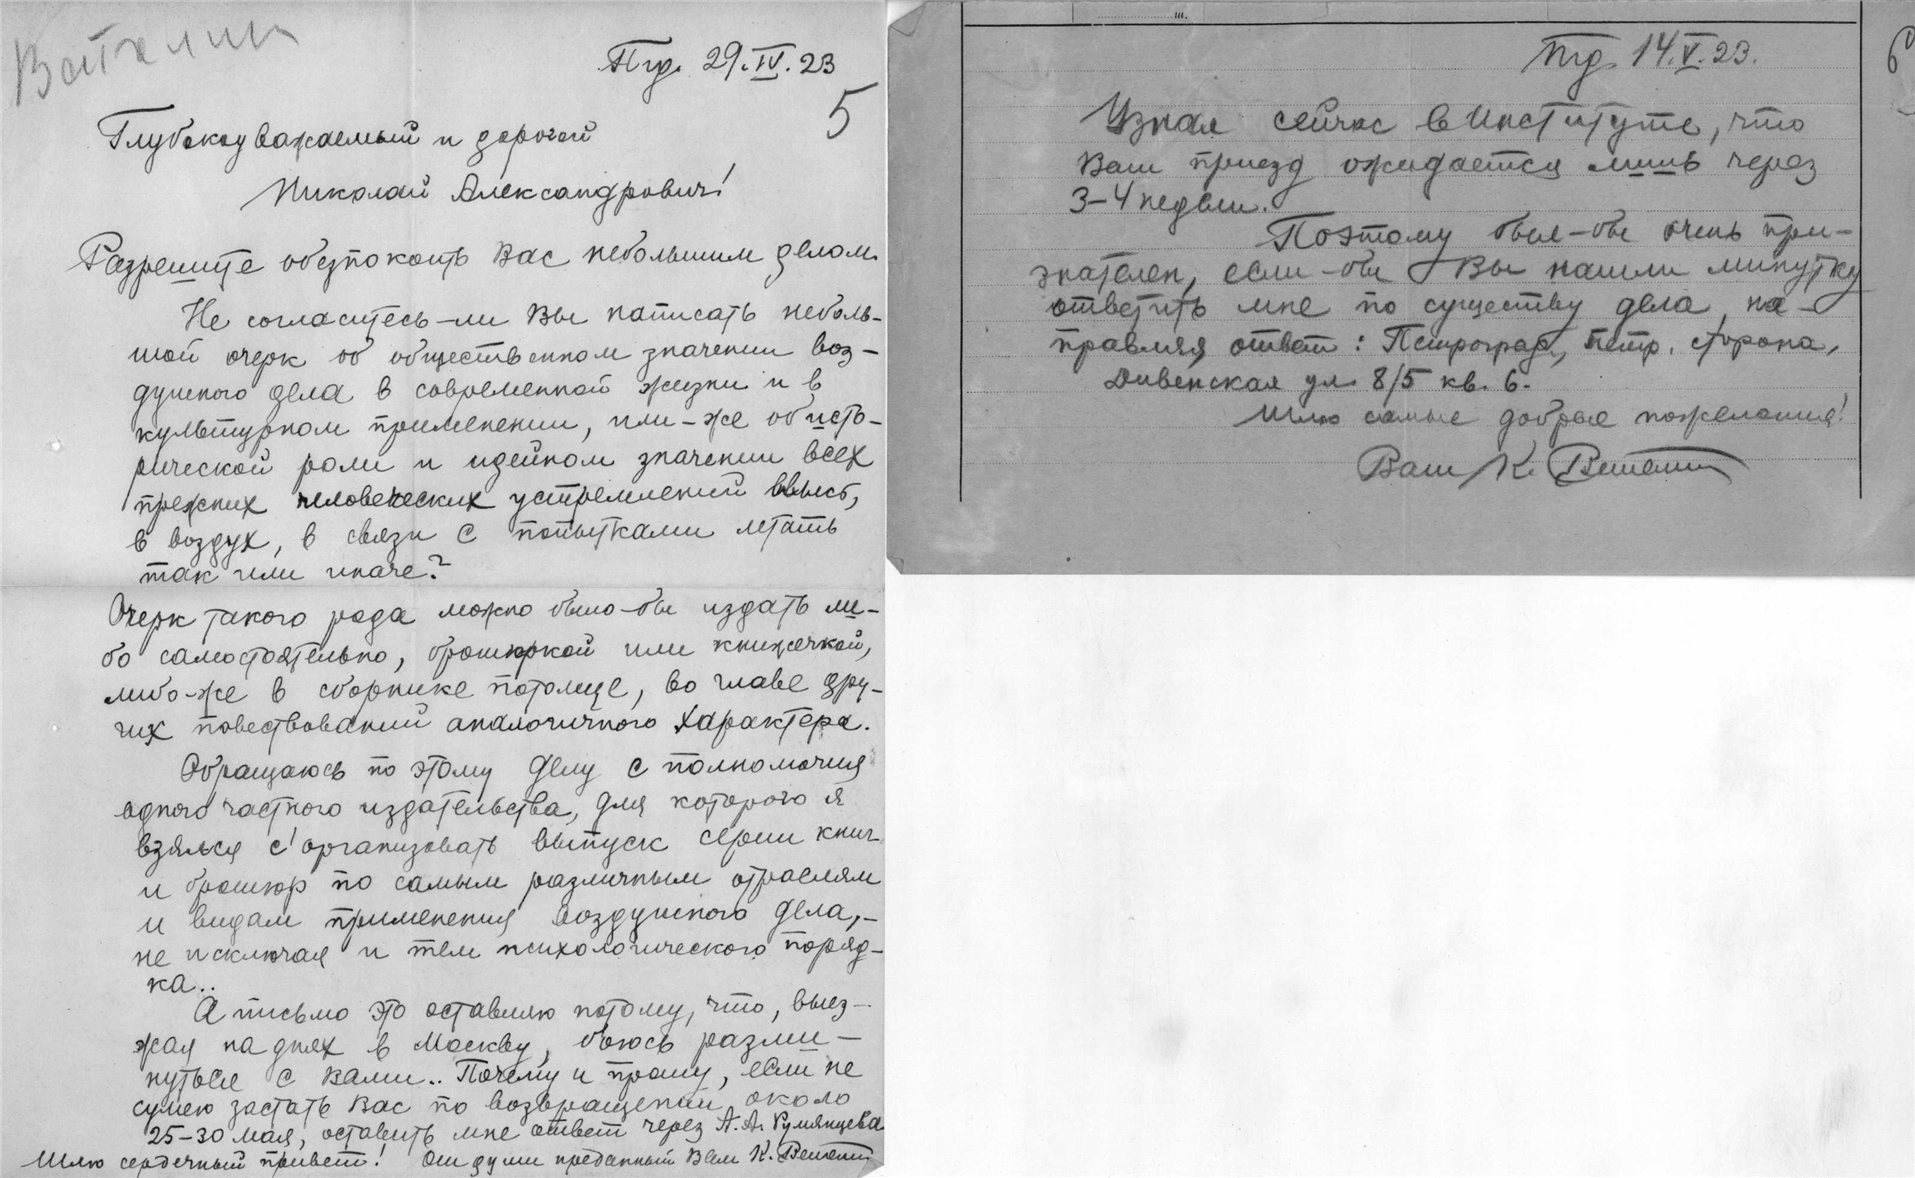 Вейгелин
Птгд. 29.IV.23
5
Глубокоуважаемый и дорогой
Николай Александрович!
Разрешите обезпокоить Вас небольшим делом.
Не согласитесь-ли Вы написать неболь-
шой очерк об общественном значении воз-
душного дела в современной жизни и в
культурном применении, или-же об исто-
рической роли и идейном значении всех
прежних человеческих устремлений ввысь,
в воздух, в связи с попытками летать
так или иначе?
Очерк такого рода можно было-бы издать ли-
бо самостоятельно, брошюркой или книжечкой,
либо-же в сборнике потолще, во главе дру-
гих повествований аналогичного характера.
Обращаюсь по этому делу с полномочия
одного частного издательства, для которого я
взялся с'организовать выпуск серии книг
и брошюр по самым различным отраслям
и видам применения воздушного дела,-
не исключая и тем психологического поряд-
ка..
А письмо это оставляю потому, что, выез-
жая на днях в Москву, боюсь разми-
нуться с Вами.. Почему и прошу, если не
сумею застать Вас по возвращении около
25-30 мая, оставить мне ответ через А.А. Румянцева
Шлю сердечный привет! От души преданный Вам К. Вейгелин
6
Птгд. 14.V.23.
Узнал сейчас в Институте, что
Ваш приезд ожидается лишь через
3-4 недели.
Поэтому был-бы очень при-
знателен, если-бы Вы нашли минутку
ответить мне по существу дела, на-
правляя ответ: Петроград, Петр. сторона,
Дивенская ул. 8/5 кв. 6.
Шлю самые добрые пожелания!
Ваш К. Вейгелин